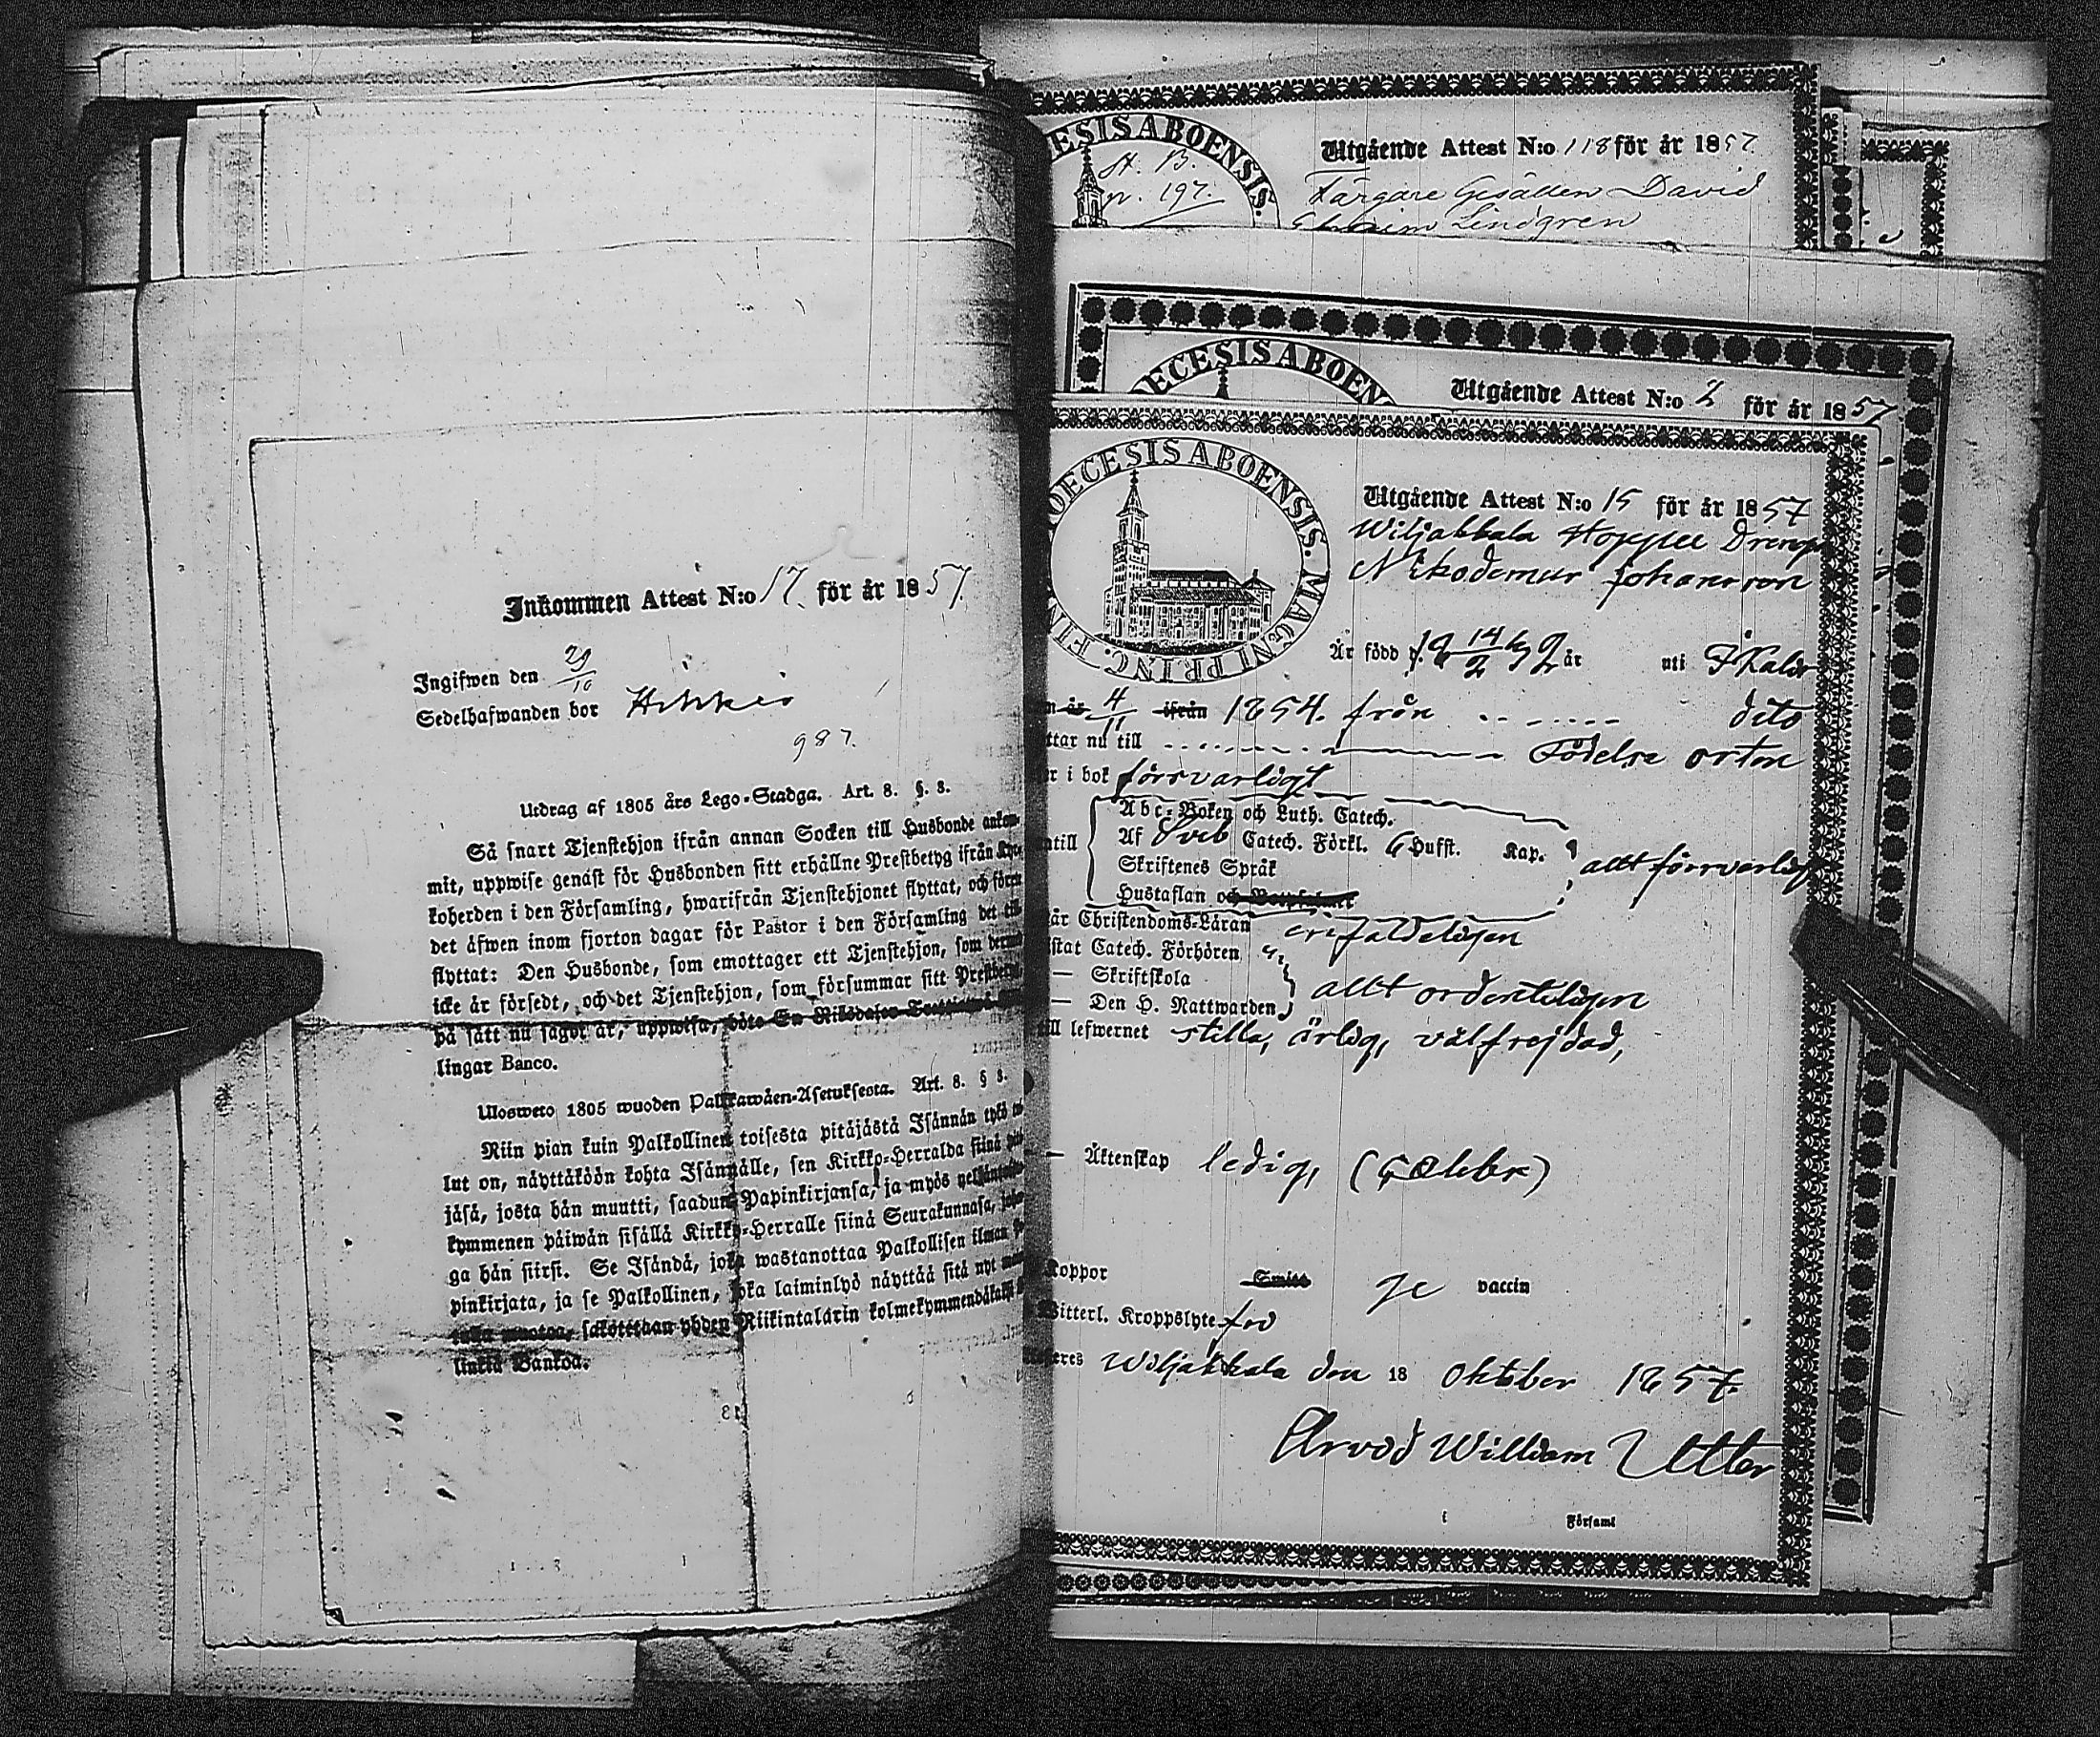 Inkommen Attest N:o 17. för år 1857.
Ingifwen den 29/10
Sedelhafwanden bor
987.
Utdrag af 1805 års Lego-Stadga. Art. 8. §. 3.
Så snart Tjenstehjon ifrån annan Socken till Husbonde ankom-
mit, uppwise genast för Husbonden sitt erhållne Prestbetyg ifrån Kyr-
koherden i den Församling, hwarifrån Tjenstehjonet flyttat, och förete
det äfwen inom fjorton dagar för Pastor i den Församling det till-
flyttat: Den Husbonde, som emottager ett Tjenstehjon, som dermed
icke är försedt, och det Tjenstehjon, som försummar sitt Prestbetyg,
på sätt nu sagdt är, uppwisa, böte En Riksdaler
lingar Banco.
Ulosweto 1805 wuoden Palkkawäen-Asetuksesta. Art. 8. § 3.
Niin pian kuin Palkollinen toisesta pitäjästä Isännän työ
lut on, näyttäköön kohta Isännälle, sen Kirkko-Herralda siinä pitä-
jäsä, josta hän muutti, saadun Papinkirjansa, ja myös neljäntoista-
kymmenen päiwän sisällä Kirkko-Herralle siinä Seurakunnasa, johon-
ga hän siirsi. Se Isändä, joka wastanottaa Palkollisen ilman
pinkirjata, ja se Palkollinen, joka laiminlyö näyttää sitä nyt
muotoa, sakotetaan yhden Riikintalarin kolmekymmendäkaksi
linkiä Bankoa.
DECESIS ABOENSIS.
St. B.
p. 197.
Utgående Attest N:o 118 för år 1857.
Färgare Gesällen David
Ephraim Lindgren
DECESIS ABOEN
Utgående Attest N:o 2 för år 1857
DECESIS ABOENSIS. MAGNI PRINC. FIN
Utgående Attest N:o 15 för år 1857
Wiljakkala Hoppee Dreng
Nikodemus Johansson
Är född 14/2 år uti Ikalis
4/11 ifrån 1854. från dito
ttar nu till Födelse orten
r i bok försvarligt
Abc-Boken och Luth. Catech.
ntill Af Sveb Catech. Förkl. 6 Hufst. Kap. allt försvarligt
Skriftenes Språk
Hustaflan och Botpsalmer
år Christendoms-Läran enfaldeligen
istat Catech. Förhören
— Skriftskola allt ordenteligen
— Den H. Nattwarden
ill lefwernet stilla, ärlig, välfrejdad,
— Äktenskap ledig,
Koppor vaccin
Witterl. Kroppslyte fri
Wiljakkala den 18 Oktober 1857.
Arvid William Utter
i Församl